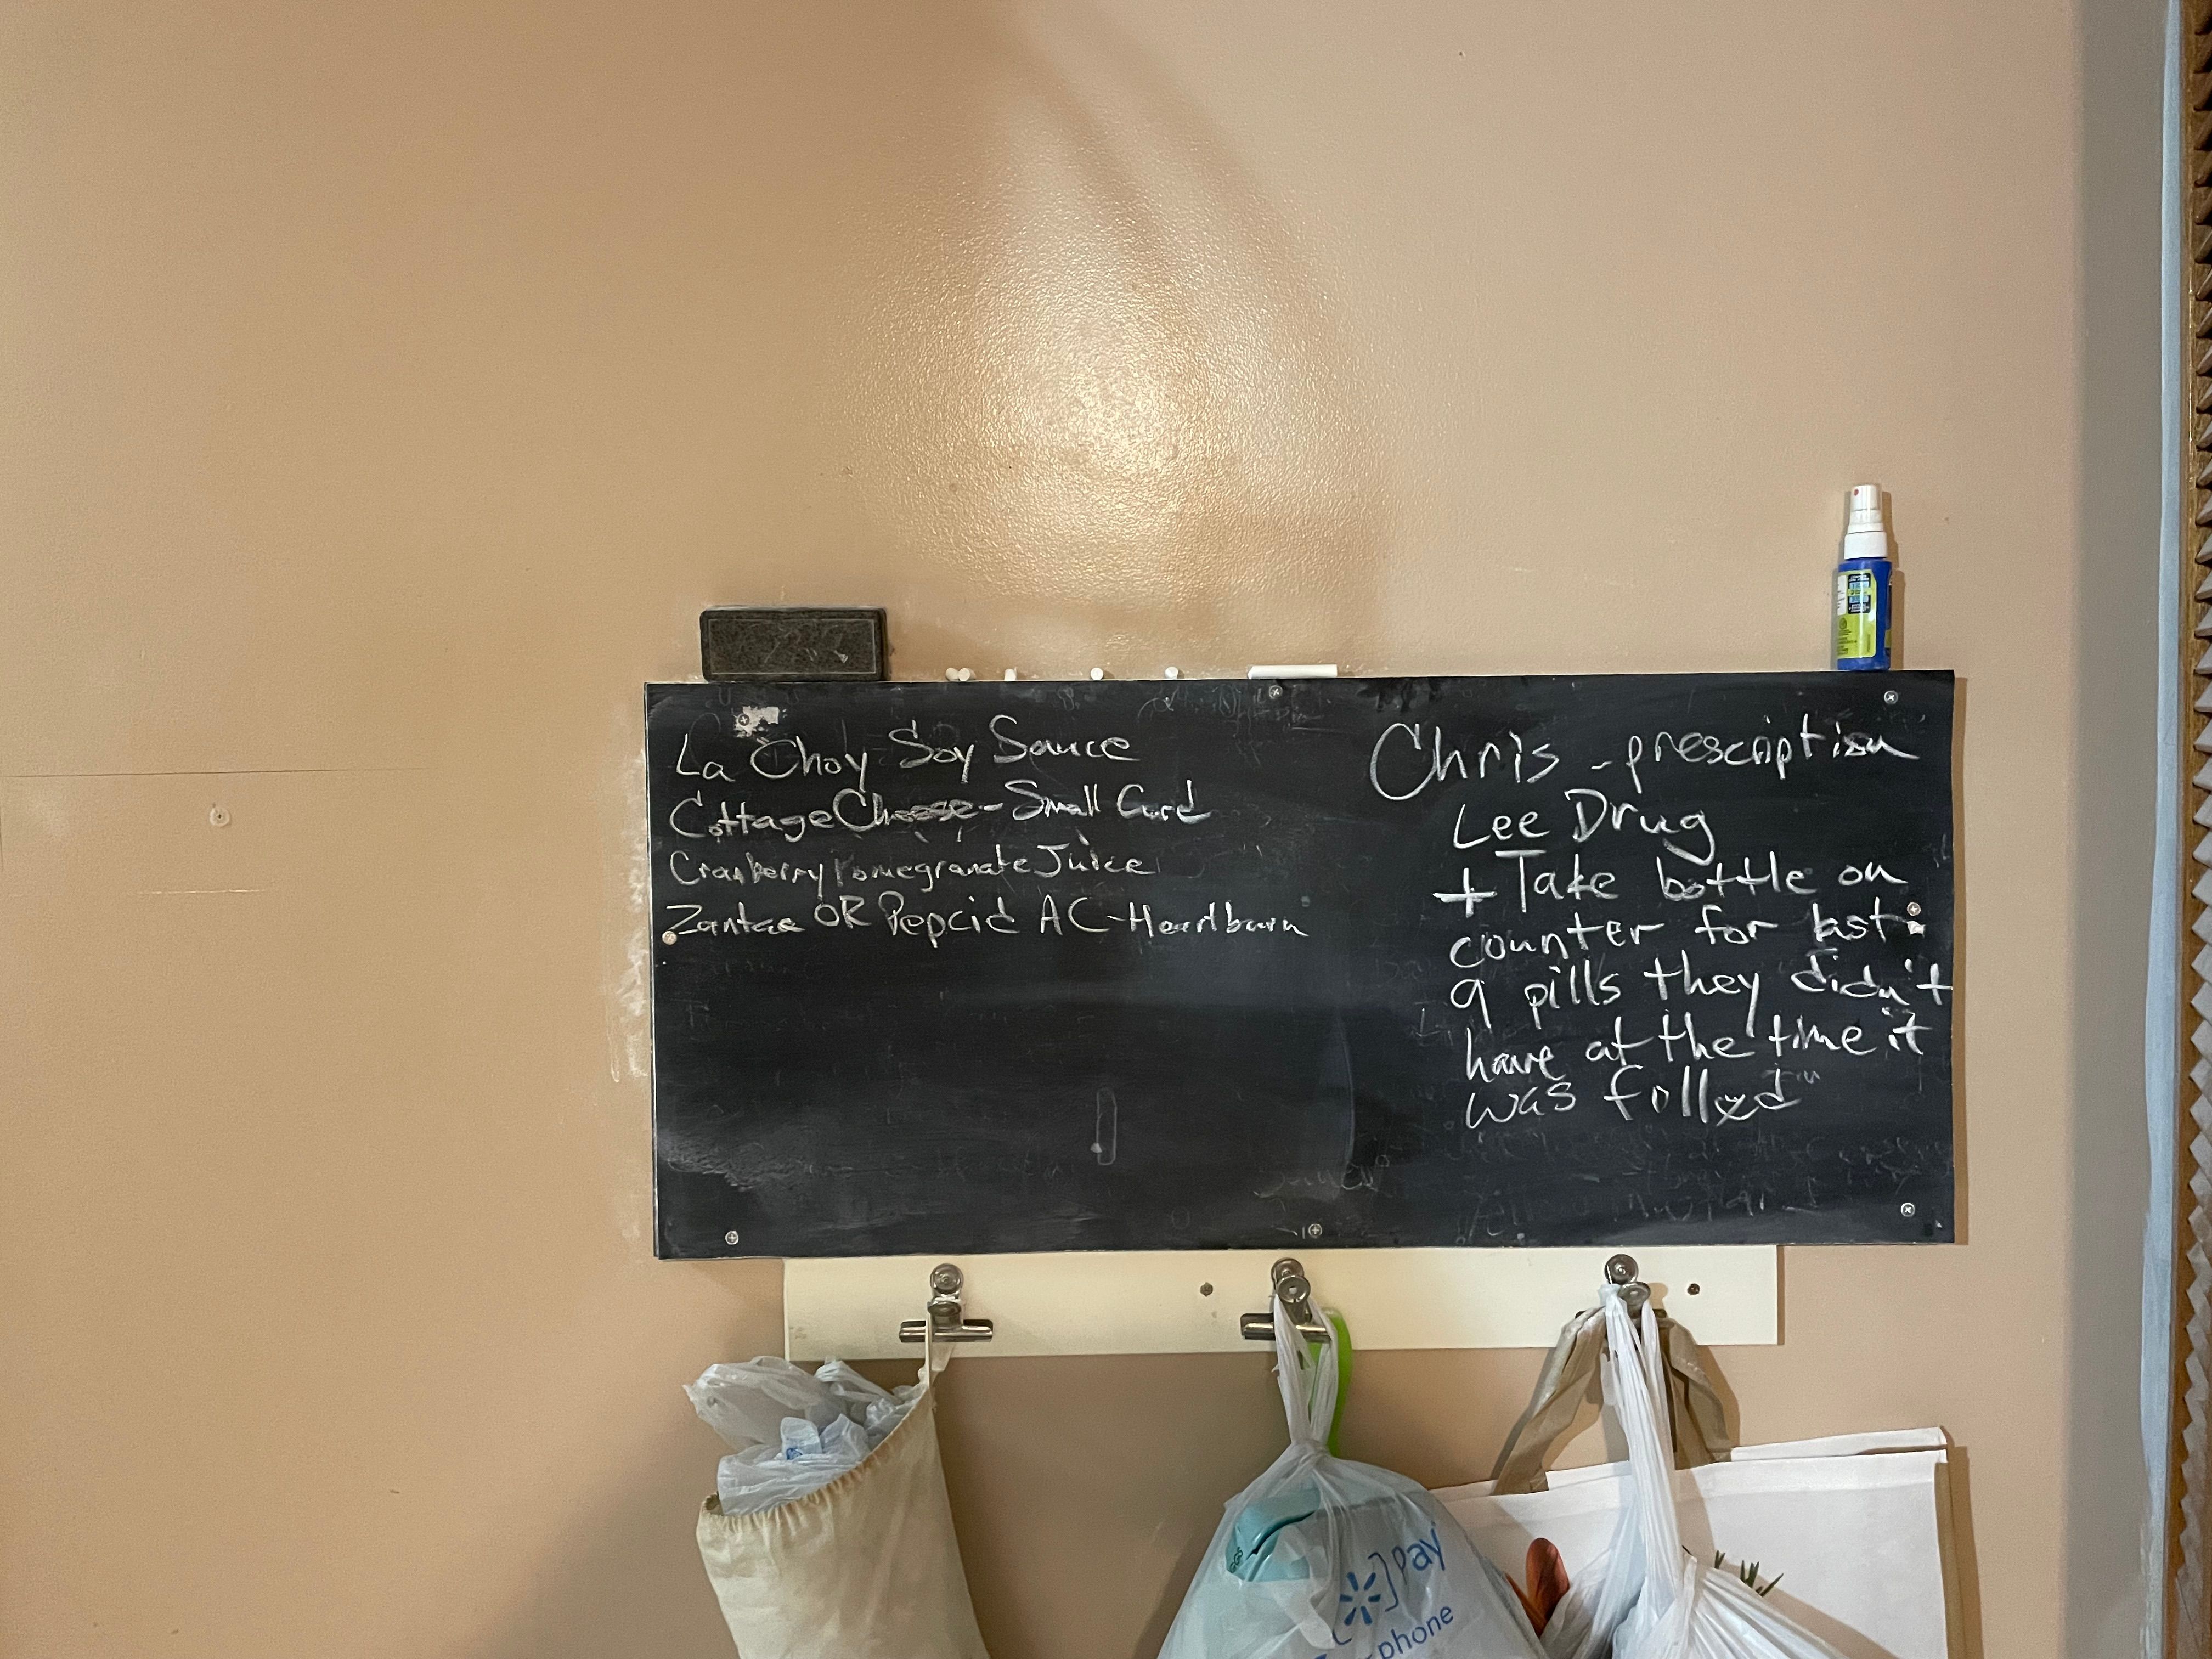 La Choy Soy Sauce
Cottage Cheese - Small Curd
Cranberry Pomegranate Juice
Zantac OR Pepcid AC - Heartburn
Chris - prescription
Lee Drug
+ Take bottle on
counter for last
9 pills they didn't
have at the time it
was filled
Pay
phone